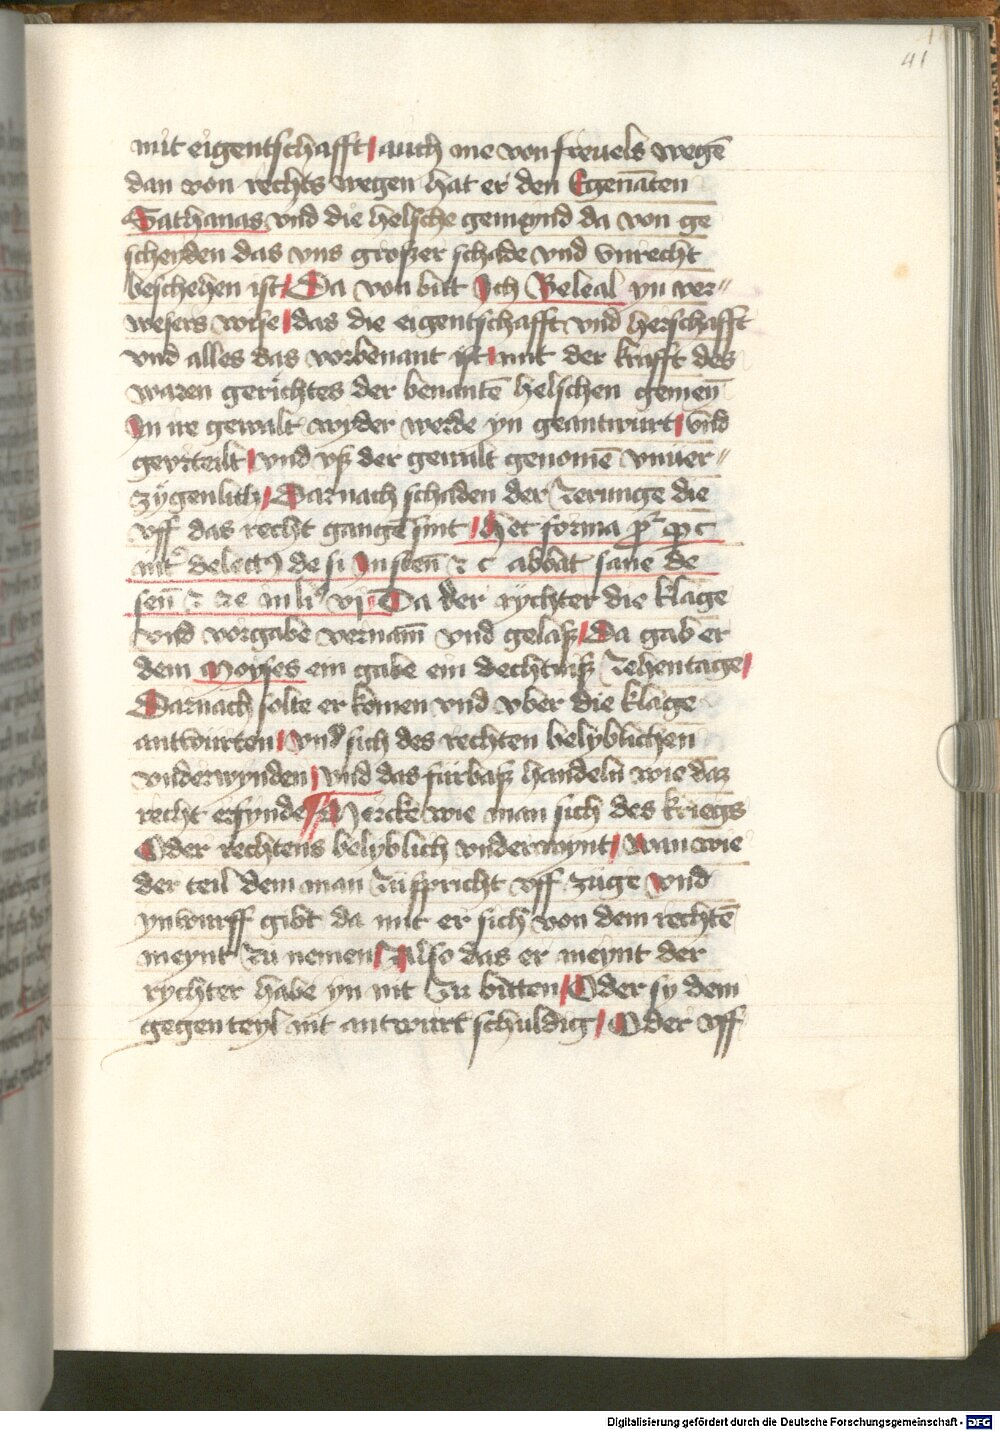 41
mit eigentschafft auch me von freuels wegē
dan von rechts wegen hat er den Egenāten
Sathanas vnd die helsche gemeynd da von ge
scheyden das vns groszer schade vnd vnrecht
beschehen ist Da von bitt Ich Beleal yn ver//
wesers wise das die eigentschafft vnd herschafft
vnd alles das vorbenant ist mit der krafft des
waren gerichtes der benantē helschen gemeȳ
In ire gewalt wyder werde yn geantwurt vnd
gevrteilt vnd vsz der gewalt genomē vnuer//
zÿgenlich Darnach schaden der zerunge die
vff das recht gangē sint Het forma
de si In abbat sane de
Da der rychter die klage
vnd vorgabe vernam̄ vnd gelasz Da gab er
dem Moyses ein gabe ein dechtnisz zehen tage
Darnach solte er komen vnd vber die klage
antwurten vnd sich des rechten belyblichen
vnderwynden vnd das fürbasz handeln wie daz
recht erfynde Mercke wie man sich des kriegs
Oder rechtens belyblich vnderwynt Wan wie
der teil dem man zuspricht vff züge vnd
ynwurff gibt da mit er sich von dem rechtē
meynt zu nemen Also das er meynt der
rychter habe yn nit zu bitten Oder sy dem
gegenteyl nit antwurt schuldig Oder vff
Digitalisierung gefördert durch die Deutsche Forschungsgemeinschaft - DFG